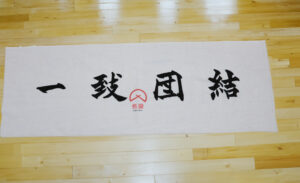 一致団結